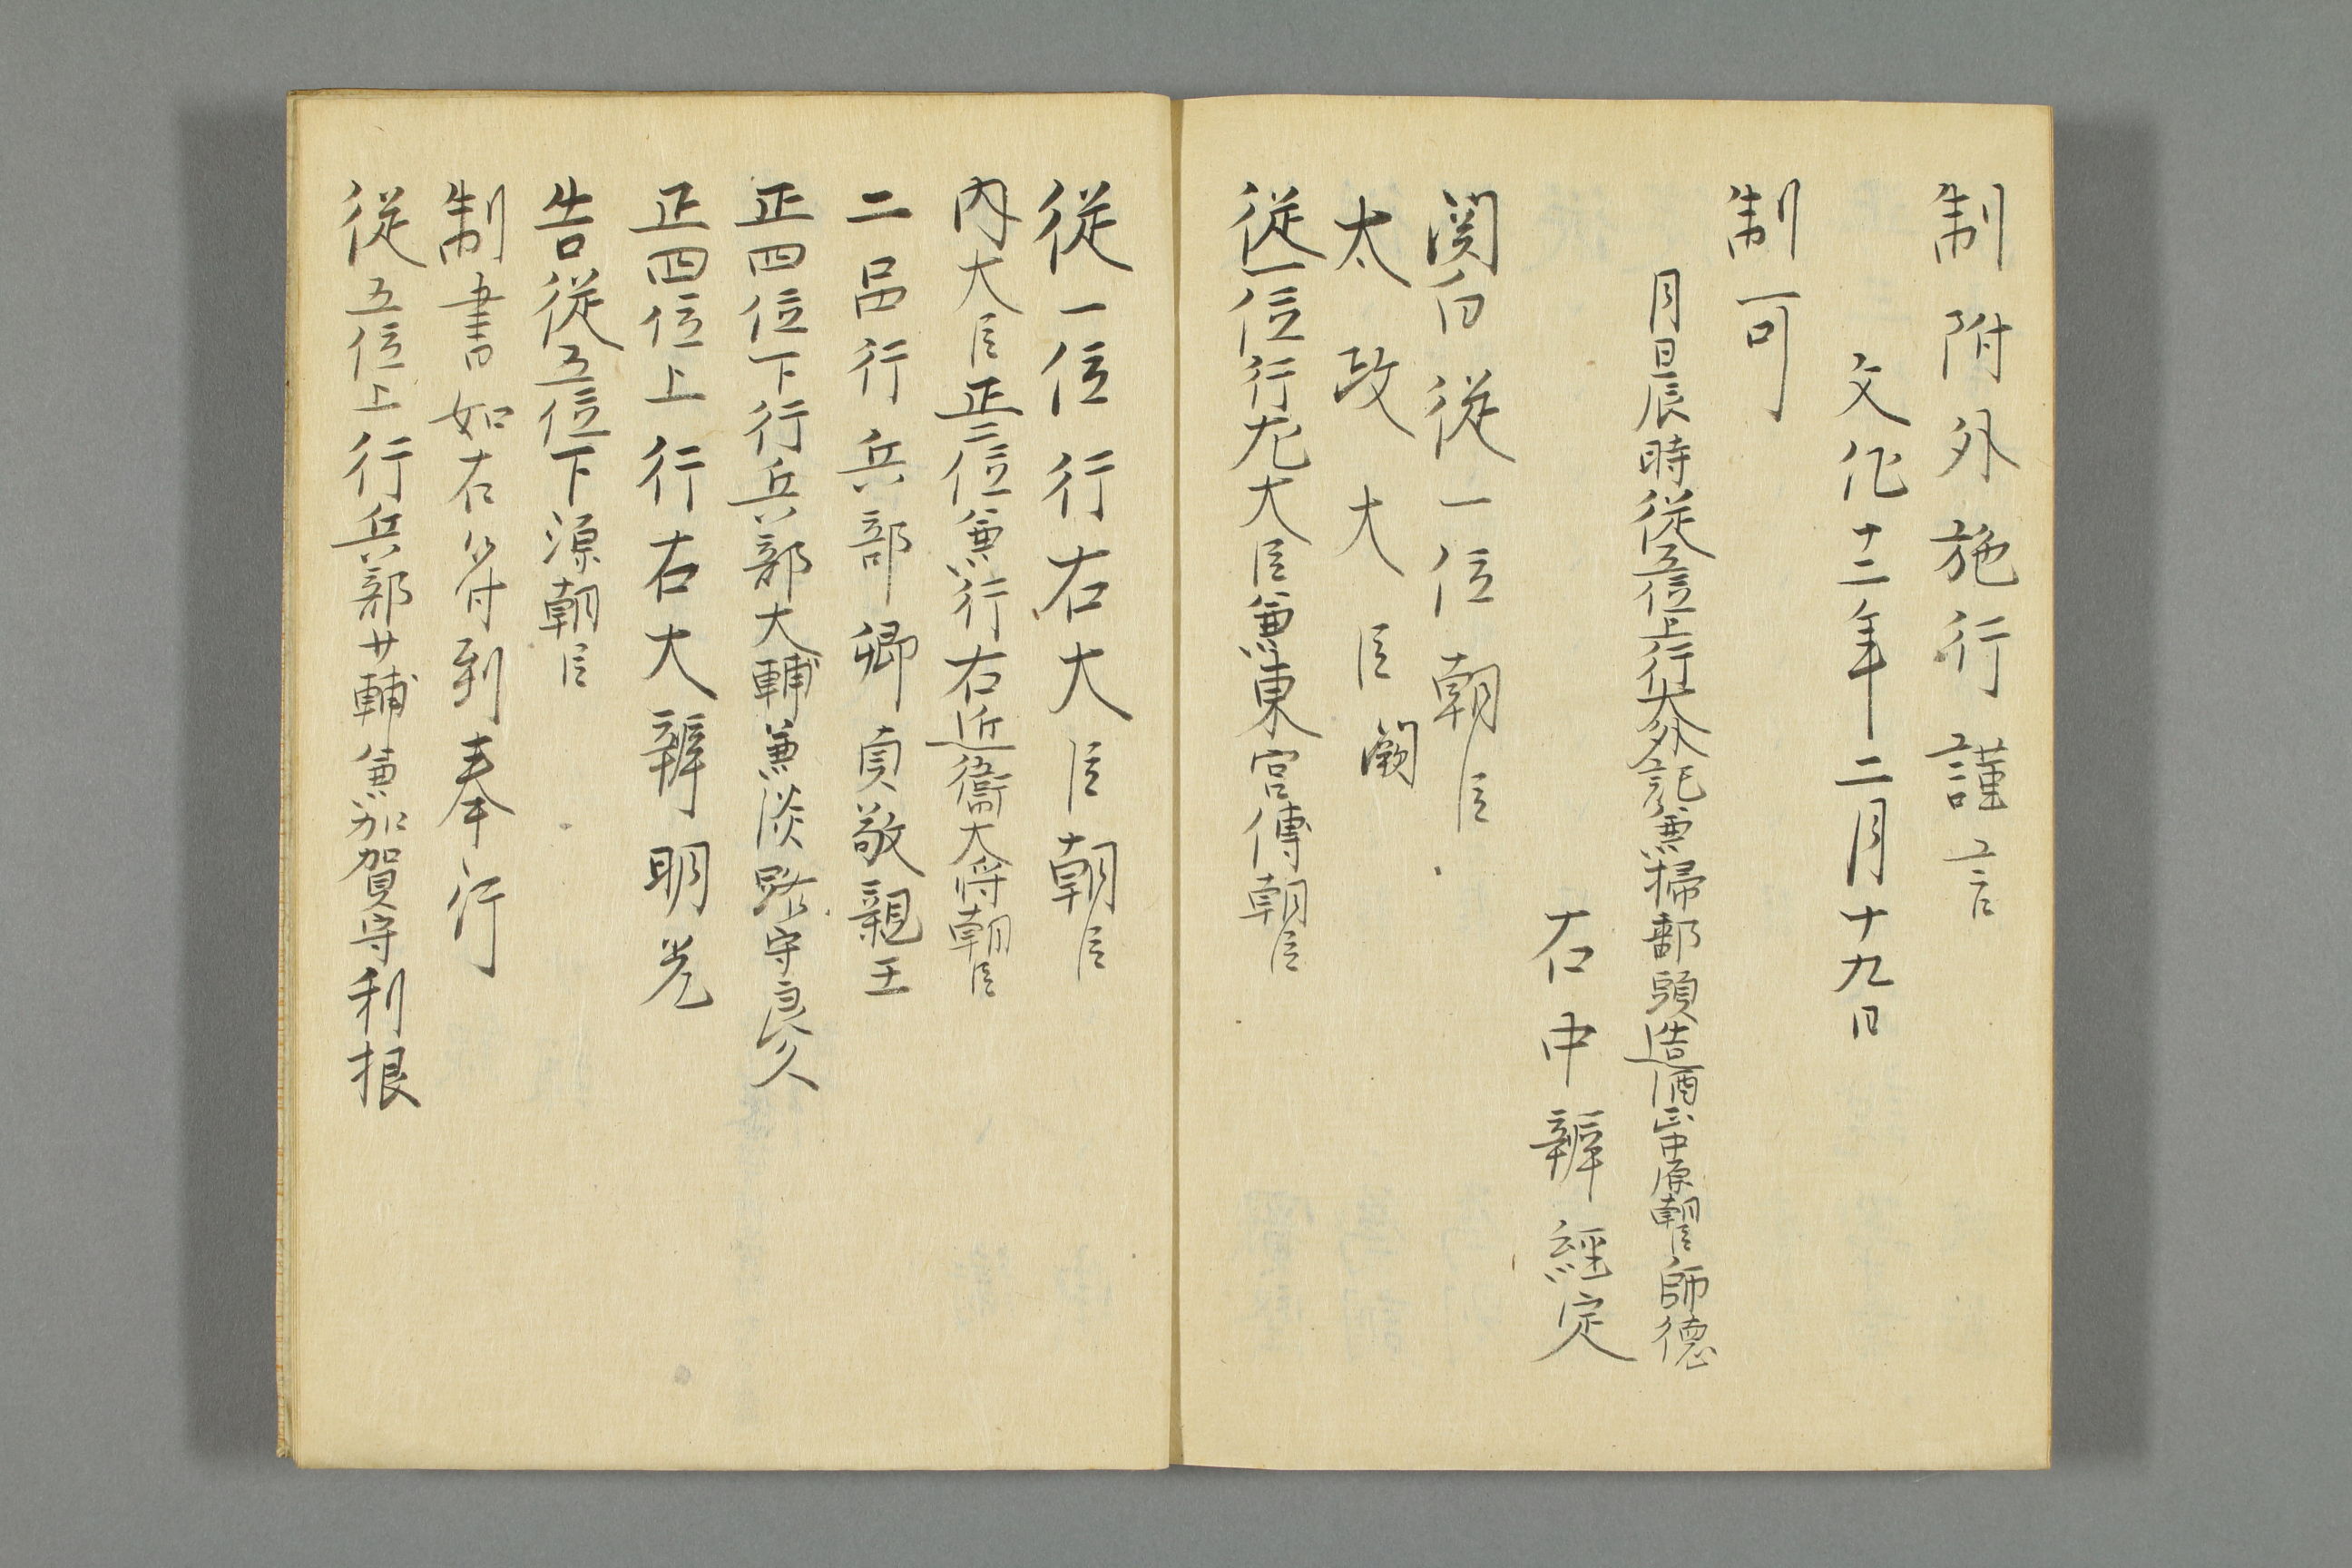 制附外施行謹言
文化十二年二月十九日
制可
月日辰時従五位上行大外記兼掃部頭造酒正中原朝臣師徳
右中辨経定
関白従一位朝臣
太政大臣闕
従一位行左大臣兼東宮傅朝臣
従一位行右大臣朝臣
内大臣正二位兼行右近衛大将朝臣
二品行兵部卿貞敬親王
正四位下行兵部大輔兼淡路守良久
正四位上行右大辨明光
告従五位下源朝臣
制書如右符到奉行
従五位上行兵部少輔兼加賀守利根